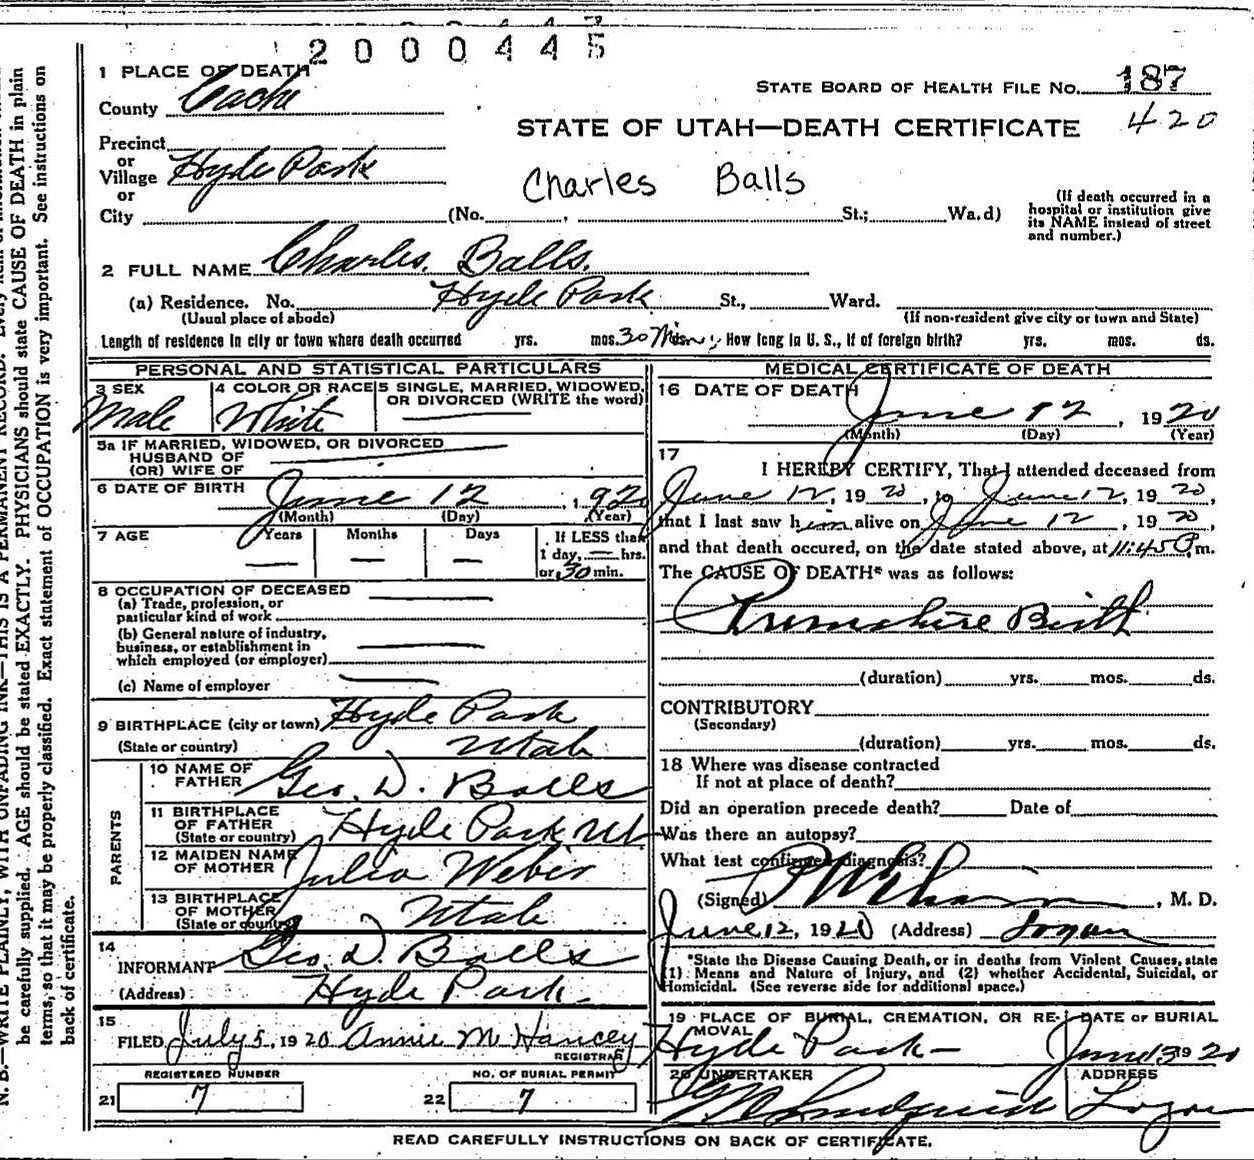 2000445
1 PLACE OF DEATH
County Cache
STATE BOARD OF HEALTH FILE No. 187
420
STATE OF UTAH—DEATH CERTIFICATE
Precinct
or
Village Hyde Park
or
Charles Balls
City (No. , St.; Wa.d)
(If death occurred in a
hospital or institution give
its NAME instead of street
and number.)
2 FULL NAME Charles. Balls.
(a) Residence. No. Hyde Park St., Ward.
(Usual place of abode) (If non-resident give city or town and State)
Length of residence in city or town where death occurred yrs. mos. 30 Min. How long in U. S., if of foreign birth? yrs. mos. ds.
PERSONAL AND STATISTICAL PARTICULARS
3 SEX
Male
4 COLOR OR RACE
White
5 SINGLE, MARRIED, WIDOWED,
OR DIVORCED (WRITE the word)
5a IF MARRIED, WIDOWED, OR DIVORCED
HUSBAND OF
(OR) WIFE OF
6 DATE OF BIRTH June 12, 1920
(Month) (Day) (Year)
7 AGE Years Months Days
If LESS than
1 day, — hrs.
or 30 min.
8 OCCUPATION OF DECEASED
(a) Trade, profession, or
particular kind of work
(b) General nature of industry,
business, or establishment in
which employed (or employer)
(c) Name of employer
9 BIRTHPLACE (city or town) Hyde Park
(State or country) Utah
PARENTS
10 NAME OF
FATHER Geo. D. Balls
11 BIRTHPLACE
OF FATHER
(State or country) Hyde Park Ut
12 MAIDEN NAME
OF MOTHER Julia Weber
13 BIRTHPLACE
OF MOTHER
(State or country) Utah
14
INFORMANT Geo. D. Balls
(Address) Hyde Park.
15
FILED July 5, 1920 Annie M Hancey
REGISTRAR
REGISTERED NUMBER NO. OF BURIAL PERMIT
21 7 22 7
MEDICAL CERTIFICATE OF DEATH
16 DATE OF DEATH
June 12, 1920
(Month) (Day) (Year)
17
I HEREBY CERTIFY, That I attended deceased from
June 12, 1920, to June 12, 1920,
that I last saw him alive on June 12, 1920,
and that death occured, on the date stated above, at 11:45 P.m.
The CAUSE OF DEATH* was as follows:
Premature Birth
(duration) yrs. mos. ds.
CONTRIBUTORY
(Secondary)
(duration) yrs. mos. ds.
18 Where was disease contracted
If not at place of death?
Did an operation precede death? Date of
Was there an autopsy?
What test confirmed diagnosis?
(Signed) , M. D.
June 12, 1920 (Address) Logan
*State the Disease Causing Death, or in deaths from Violent Causes, state
(1) Means and Nature of Injury, and (2) whether Accidental, Suicidal, or
Homicidal. (See reverse side for additional space.)
19 PLACE OF BURIAL, CREMATION, OR RE-
MOVAL
Hyde Park—
DATE OF BURIAL
June 13 1920
20 UNDERTAKER
Lundquist
ADDRESS
Logan
READ CAREFULLY INSTRUCTIONS ON BACK OF CERTIFICATE.
N. B.—WRITE PLAINLY, WITH UNFADING INK—THIS IS A PERMANENT RECORD.
be carefully supplied. AGE should be stated EXACTLY. PHYSICIANS should state CAUSE OF DEATH in plain
terms, so that it may be properly classified. Exact statement of OCCUPATION is very important. See instructions on
back of certificate.